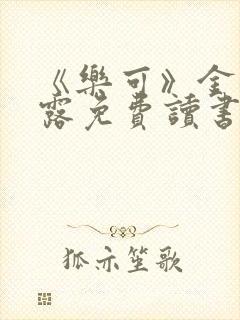 《樂可》金
露免費讀書
狐亦笙歌